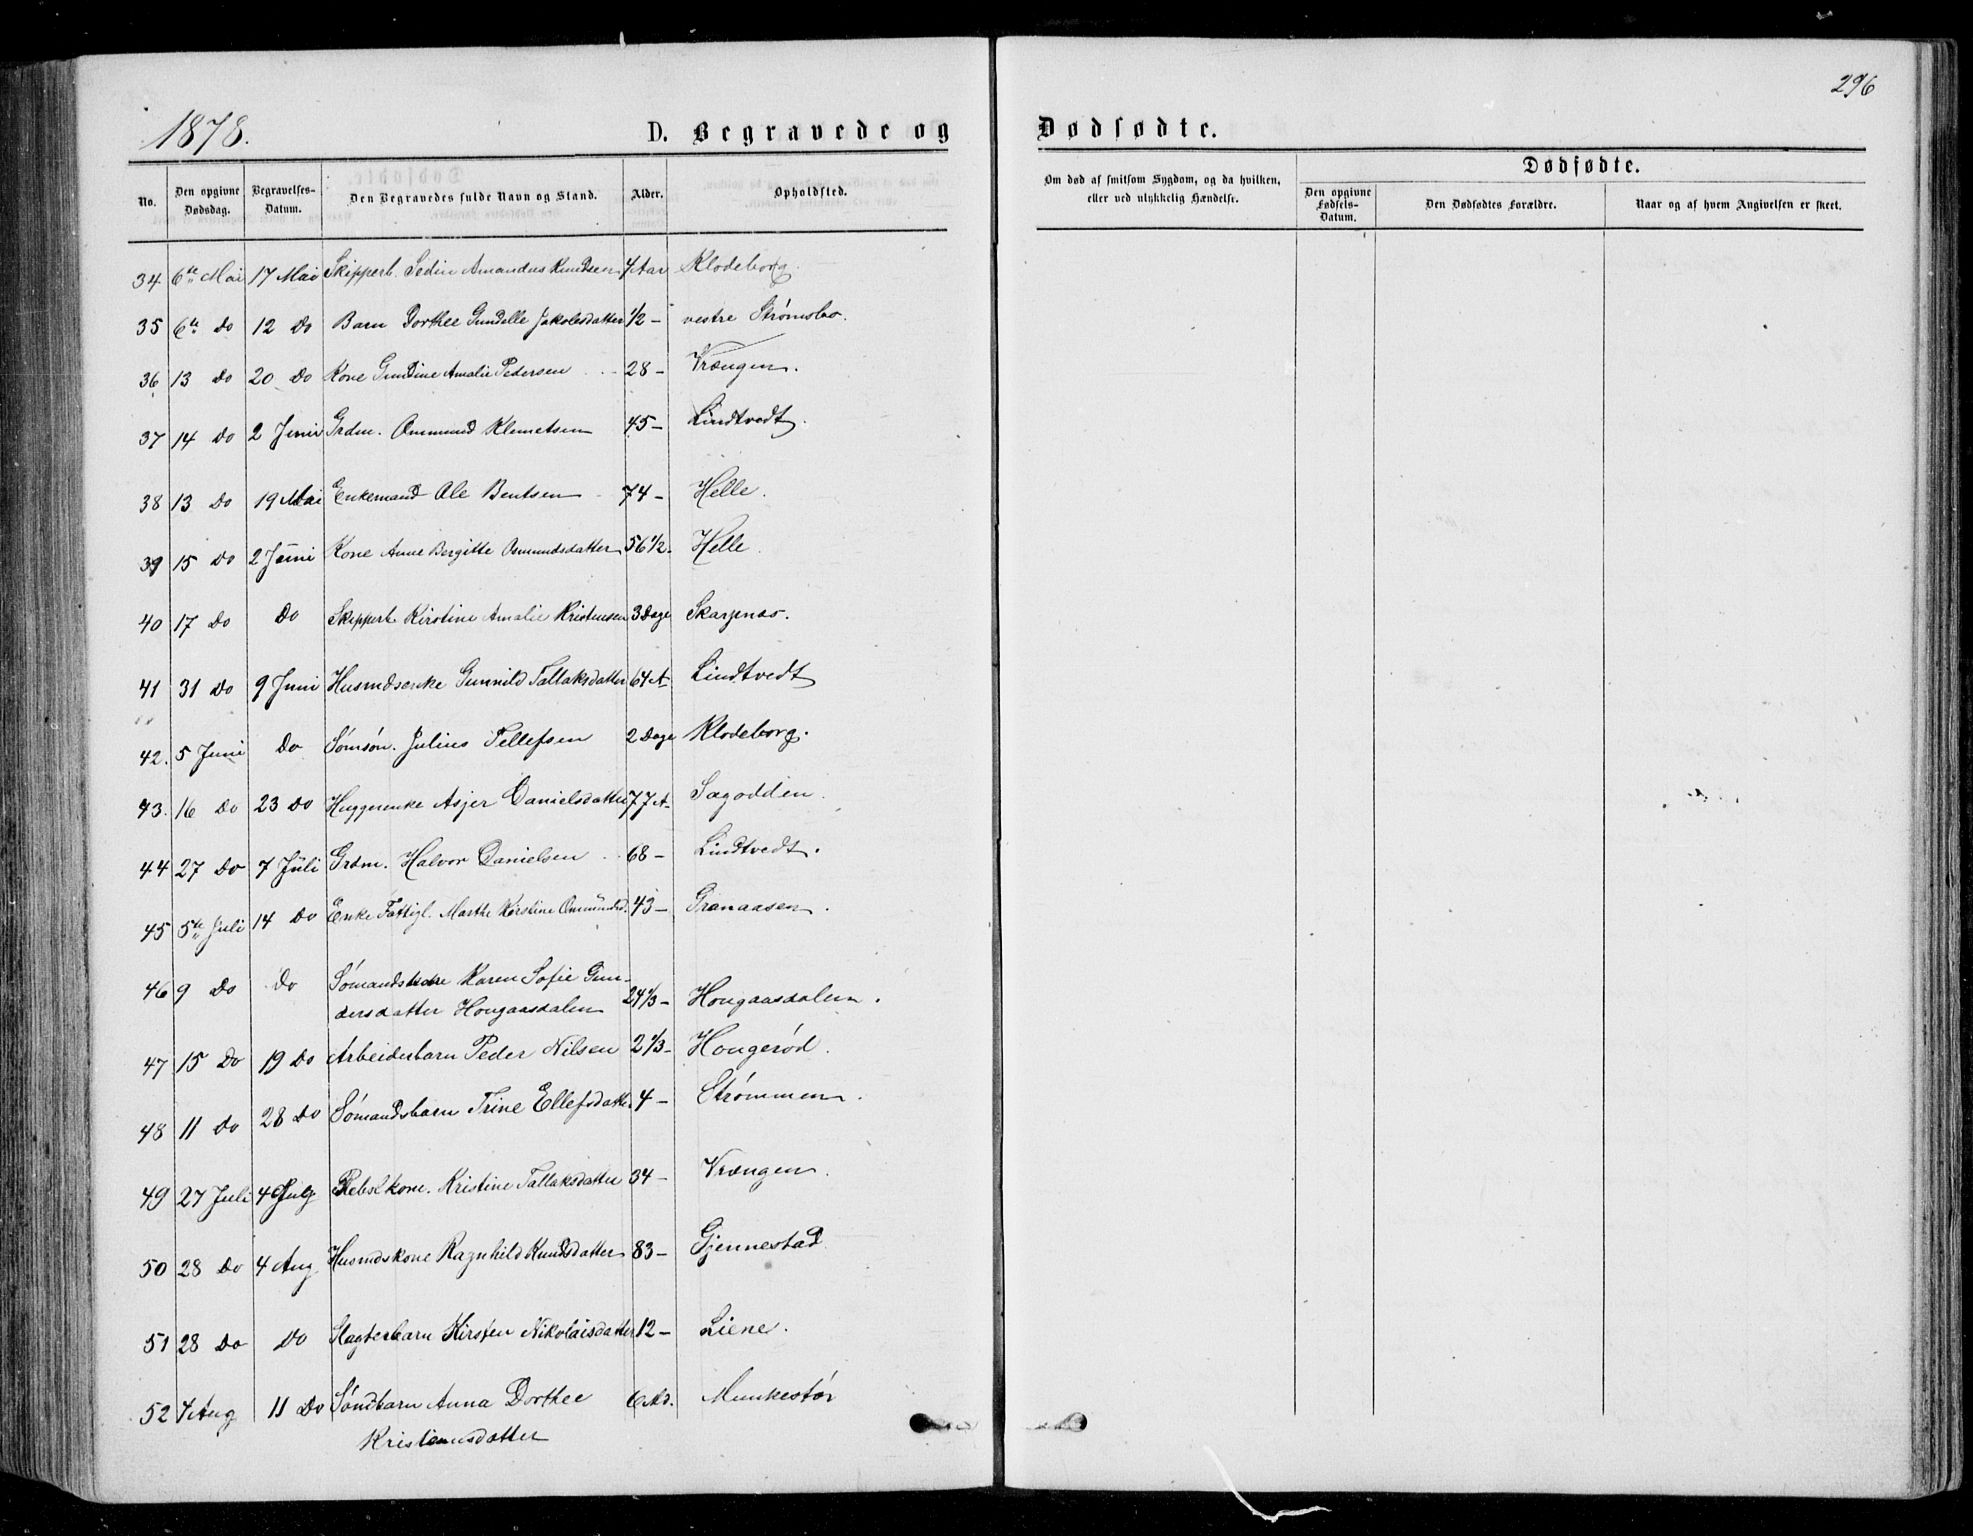 296
1878.
D. Begravede og Dødfødte.
No. Den opgivne Dødsdag. Begravelses-Datum. Den Begravedes fulde Navn og Stand. Alder. Opholdsted.
Om død af smitsom Sygdom, og da hvilken, eller ved ulykkelig Hændelse.
Dødfødte.
Den opgivne Fødsels-Datum. Den Dødfødtes Forældre. Naar og af hvem Angivelsen er skeet.
34 6te Mai 17 Mai Skipperb. Sedin Amandus Knudsen 4 Aar Klodeborg.
35 6te Do 12 Do Barn Dorthee Gundelle Jakobsdatter 1/2 - vestre Strømsbo.
36 13 Do 20 Do Kone Gundine Amalie Pedersen 28 - Vrængen.
37 14 Do 2 Juni Grdm. Ommund Klemetsen 45 - Lindtvedt.
38 13 Do 19 Mai Enkemand Ole Bentsen 74 - Helle.
39 15 Do 2 Juni Kone Anne Bergitte Osmundsdatter 56 1/2 - Helle.
40 17 Do Do Skipperb Kirstine Amalie Kristensen 3 Dage Skarpnæs.
41 31 Do 9 Juni Husmdsenke Gunnild Tallaksdatter 64 A Lindtvedt
42. 5 Juni Do Sømsøn. Julius Tellefsen 2 Dage Klodeborg.
43. 16 Do 23 Do Huggerenke Asjer Danielsdatter 77 A Sagodden.
44 27 Do 7 Juli Grdm. Halvor Danielsen 68 - Lindtvedt.
45 5te Juli 14 Do Enke Fattigl. Marthe Kirstine Omundsd. 43 - Granaasen.
46 9 Do Do Sømands Karen Sofie Gun-
dersdatter Hougaasdalen 24 1/3 - Hougaasdalen.
47 15 Do 19 Do Arbeiderbarn Peder Nilsen 2 1/3 - Hougerød.
48 11 Do 28 Do Sømandsbarn Trine Ellefsdatter 4 - Strømmen.
49 27 Juli 4 Rebslkone. Kristine Tallaksdatter 34 - Vrængen.
50 28 Do 4 Aug Husmdskone Ragnhild Knudsdatter 83 - Gjennestad
51 28 Do Do Slagterbarn Kirsten Nikolaisdatter 12 - Liene.
52 4 Aug 11 Do Sømdbarn Anna Dorthee 6 Md. Munkestør
Kristensdatter